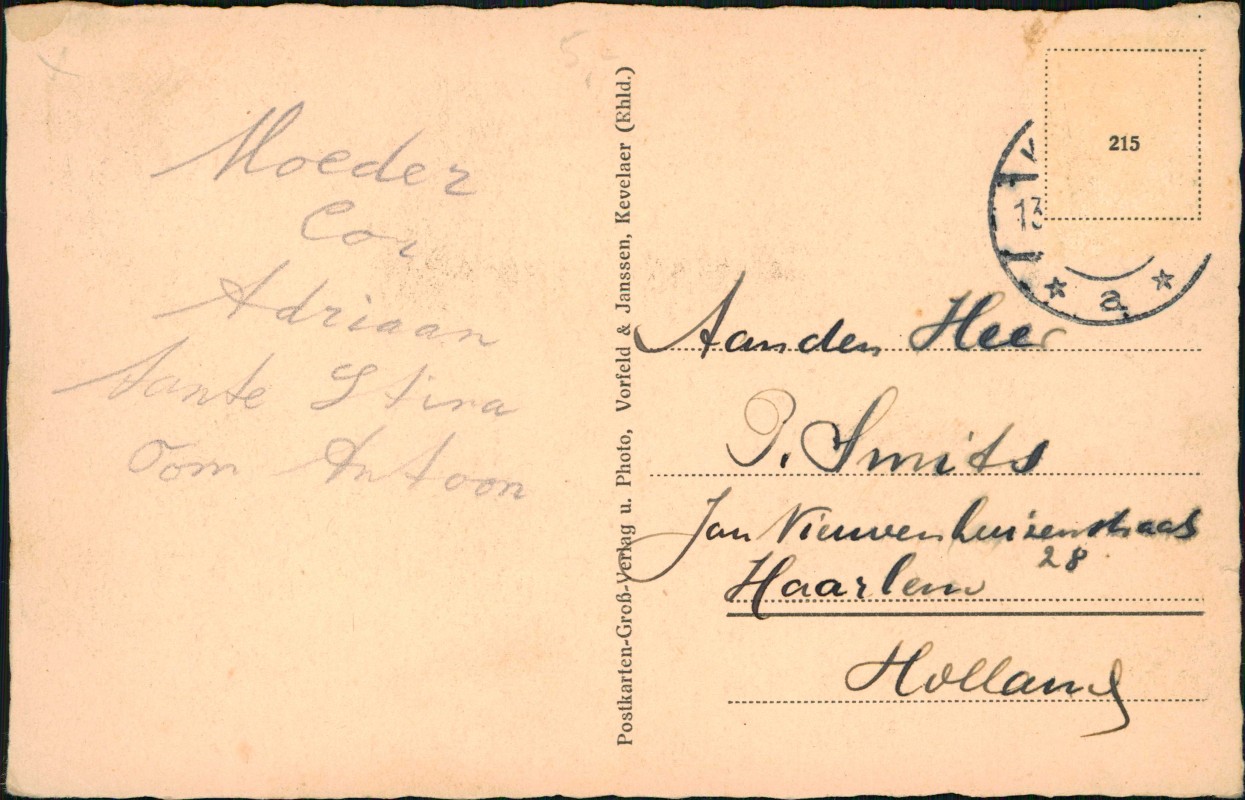 5,-
Moeder
Cor
Adriaan
Tante Stina
Oom Antoon
Postkarten-Groß-Verlag u. Photo, Vorfeld & Janssen, Kevelaer (Rhld.)
215
13
* a *
Aan den Heer
P. Smits
Jan Nieuwenhuizenstraat
28
Haarlem
Holland